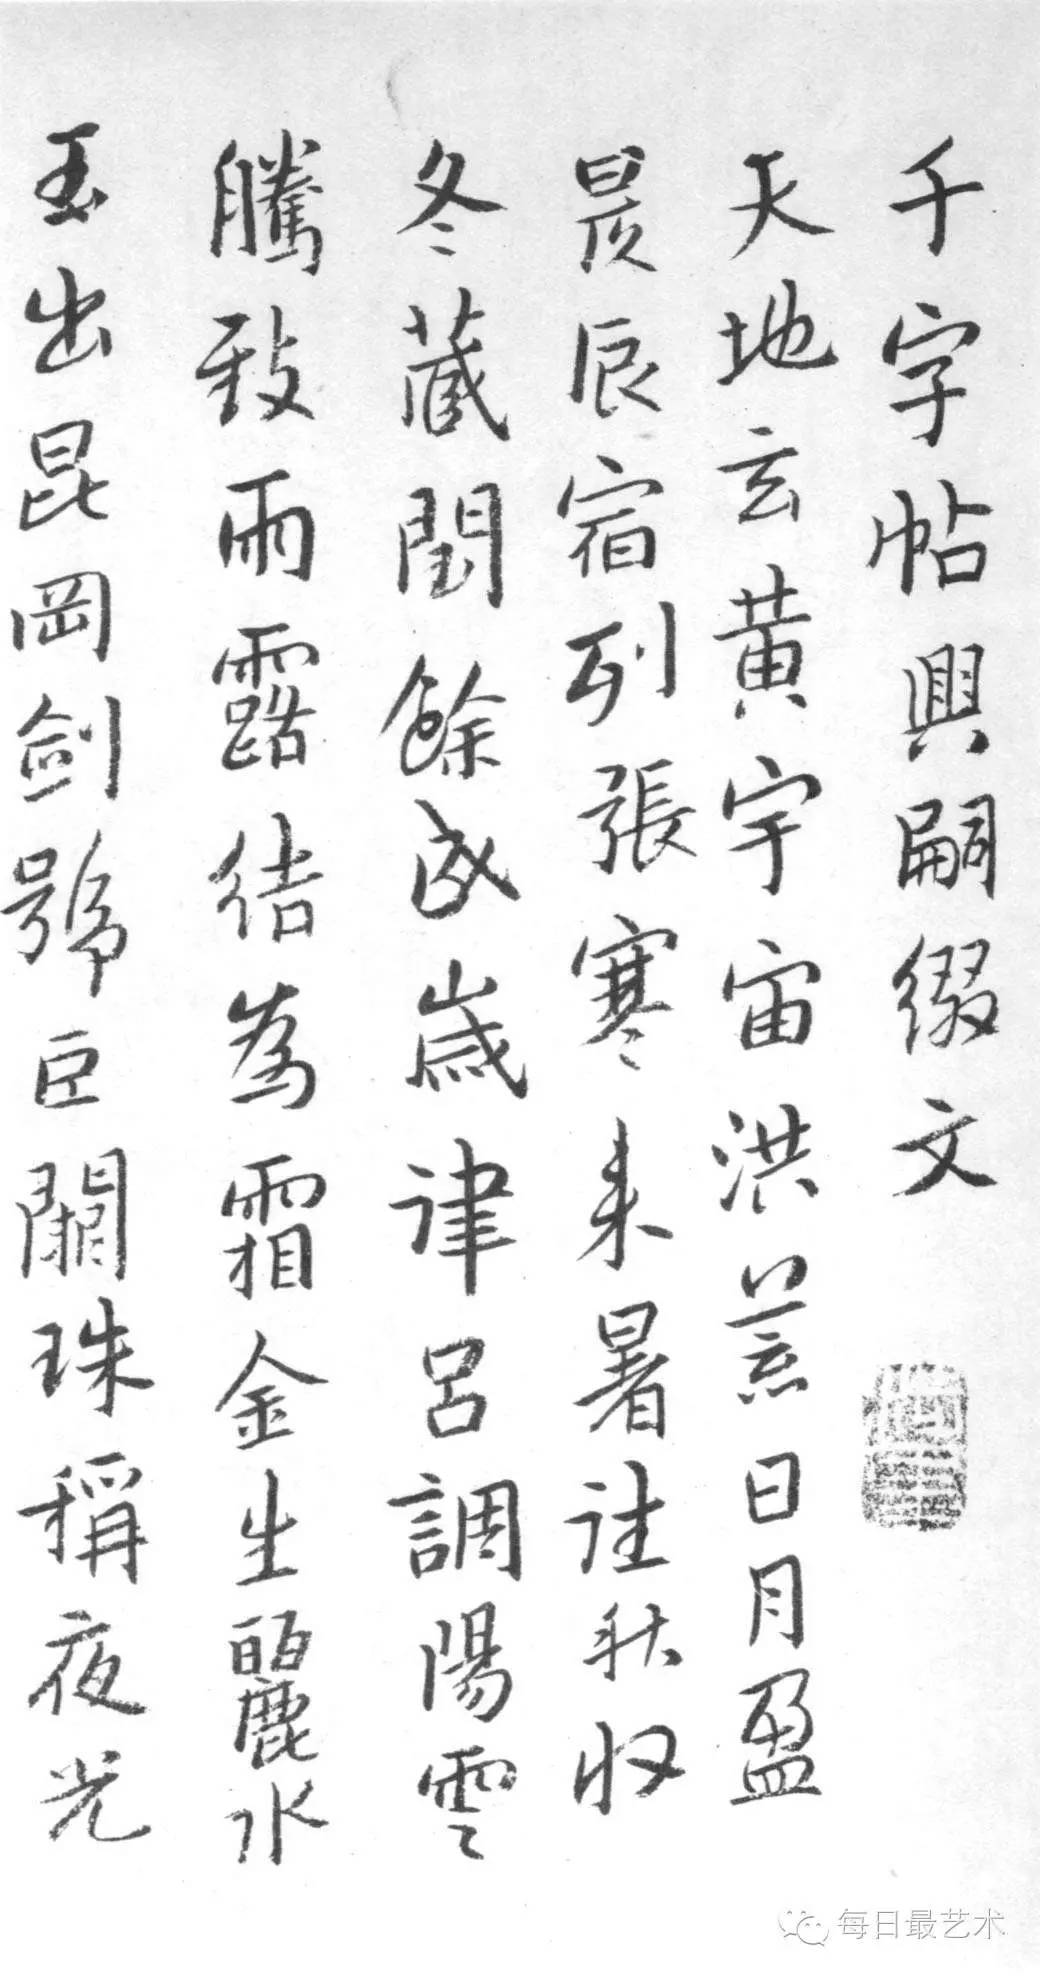 千字帖興嗣綴文
天地玄黃宇宙洪荒日月盈
昃辰宿列張寒来暑往秋收
冬蔵閏餘成歲律呂調陽雲
騰致雨露結為霜金生麗水
玉出昆岡劍號巨闕珠稱夜光
每日最艺术